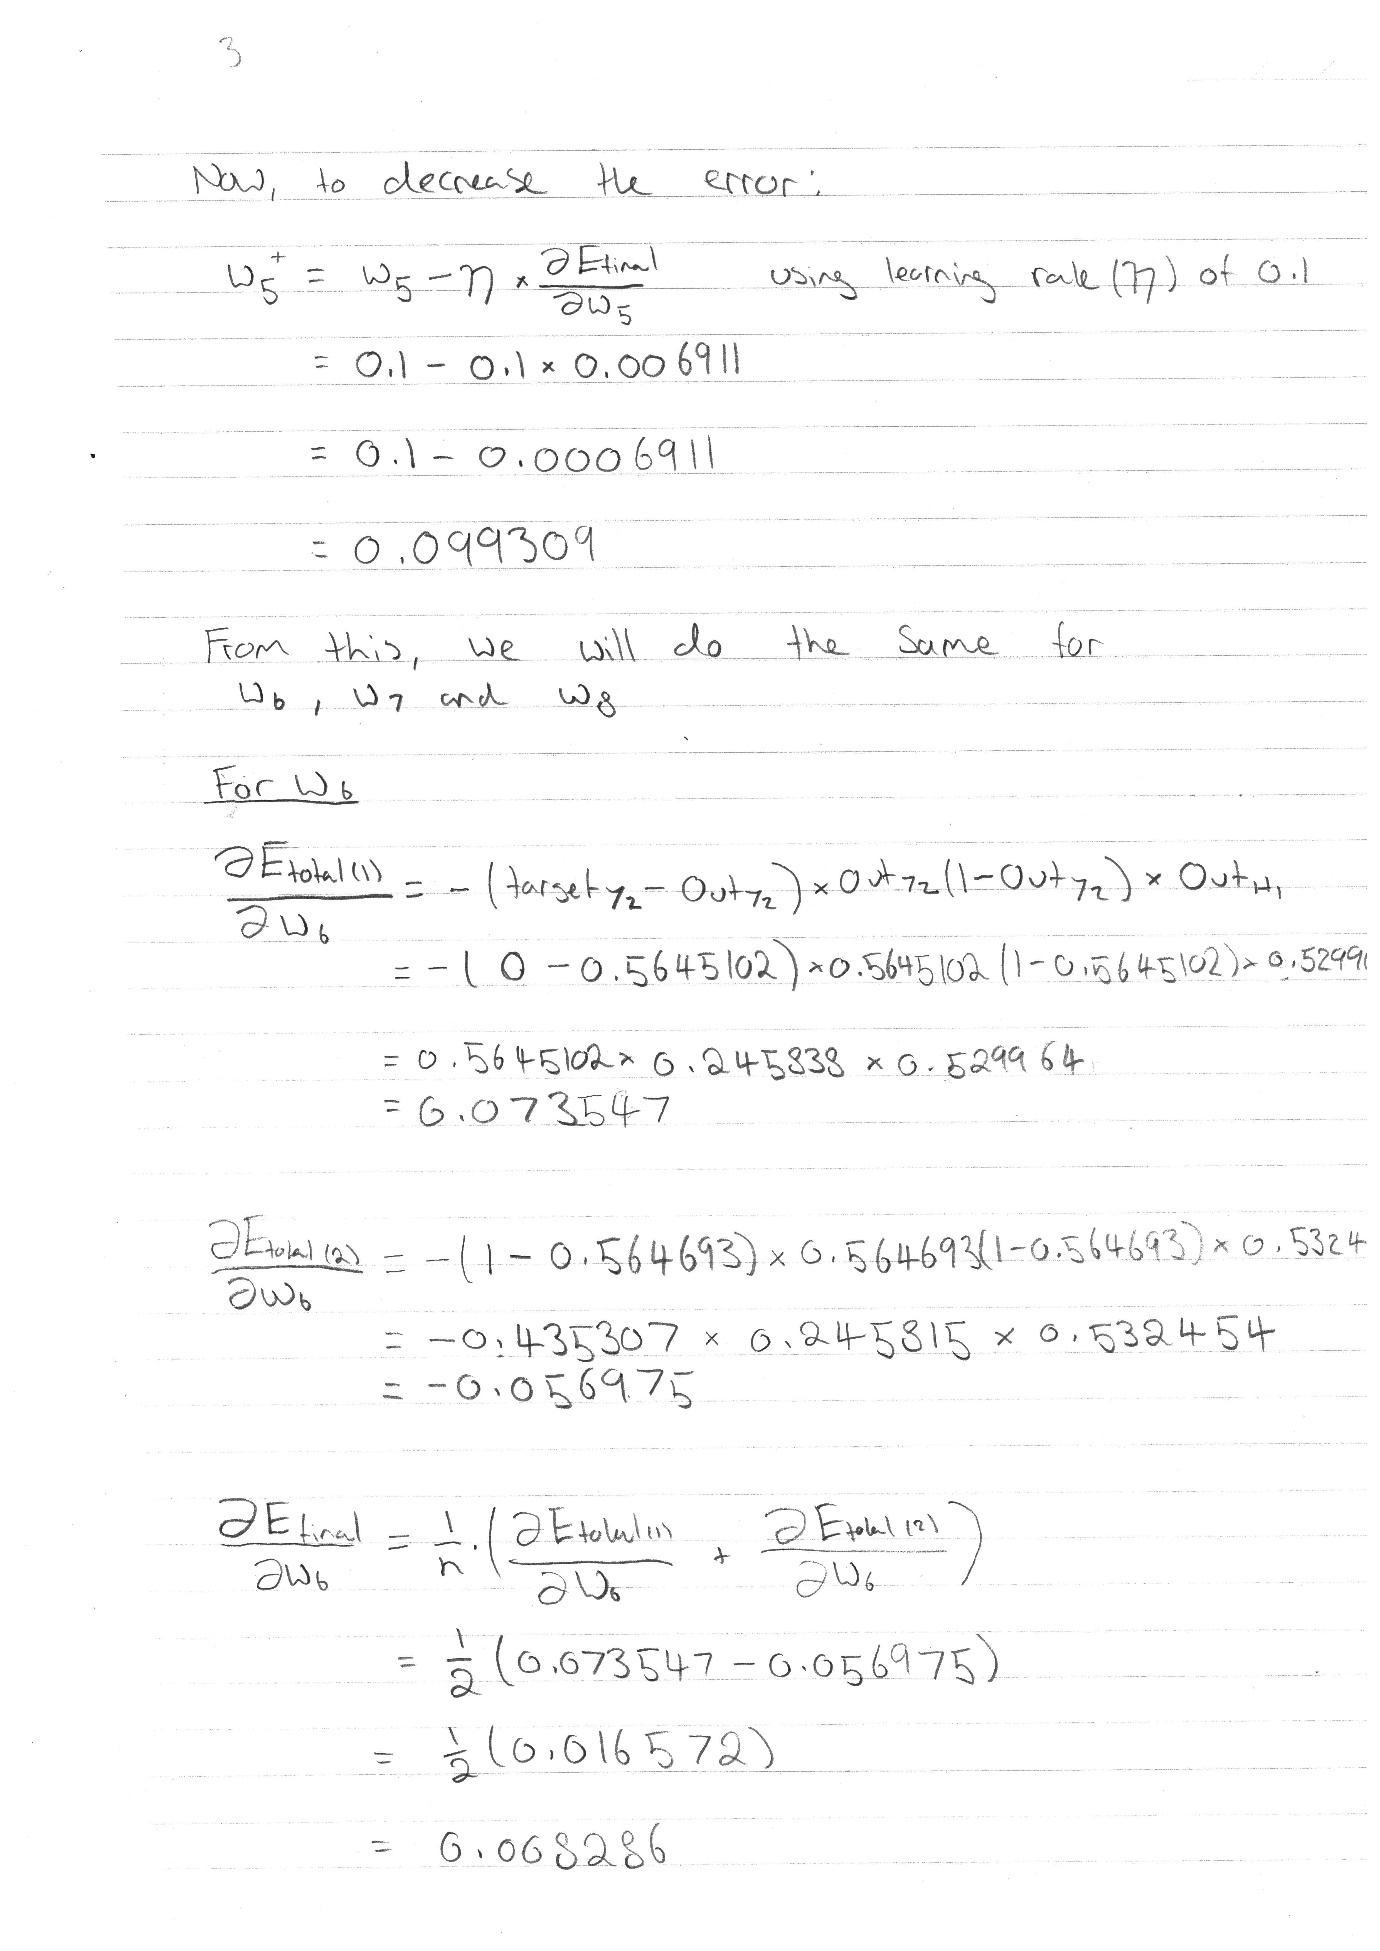 3
Now, to decrease the error:
w₅⁺ = w₅ - η × ∂Efinal/∂w₅ using learning rate (η) of 0.1
= 0.1 - 0.1 × 0.006911
= 0.1 - 0.0006911
= 0.099309
From this, we will do the same for
w₆, w₇ and w₈
For w₆
∂Etotal(1)/∂w₆ = -(target y₂ - Out y₂) × Out y₂(1 - Out y₂) × Out H₁
= -(0 - 0.5645102) × 0.5645102(1 - 0.5645102) × 0.5299
= 0.5645102 × 0.245838 × 0.529964
= 0.073547
∂Etotal(2)/∂w₆ = -(1 - 0.564693) × 0.564693(1 - 0.564693) × 0.5324
= -0.435307 × 0.245815 × 0.532454
= -0.056975
∂Efinal/∂w₆ = 1/n · (∂Etotal(1)/∂w₆ + ∂Etotal(2)/∂w₆)
= 1/2 (0.073547 - 0.056975)
= 1/2 (0.016572)
= 0.008286